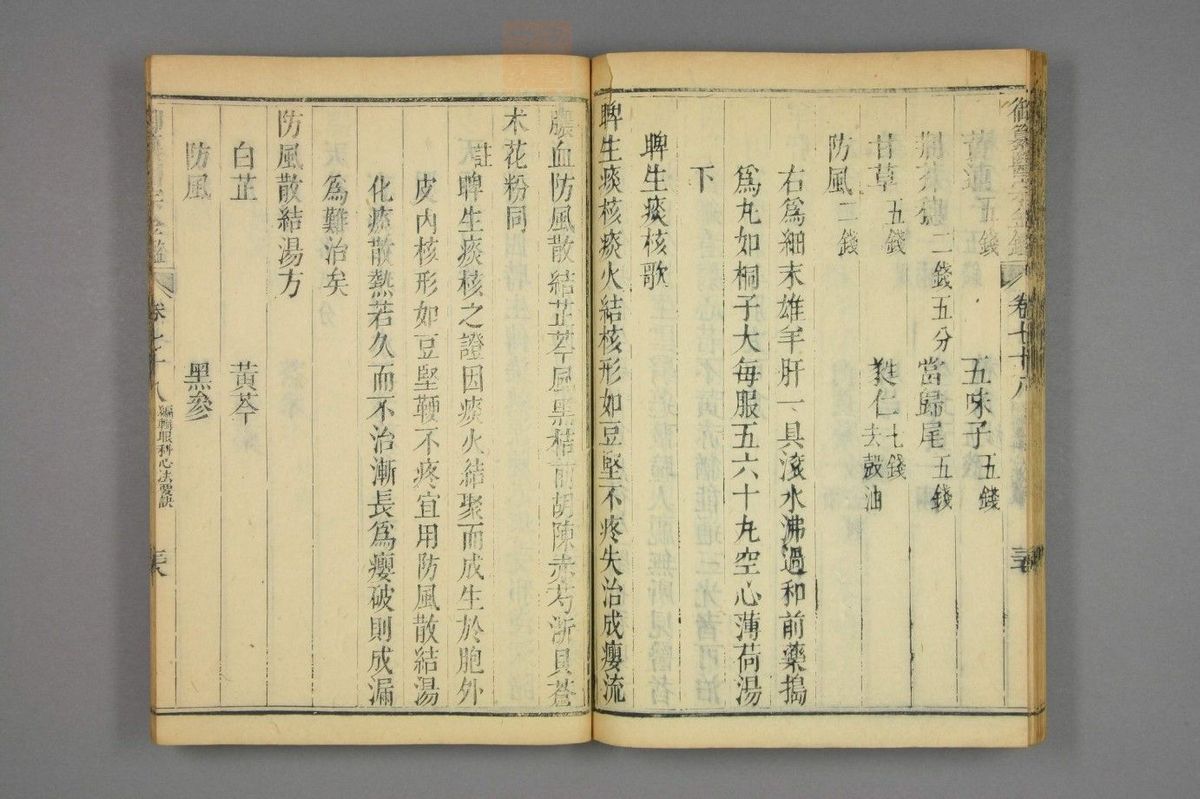 御纂醫宗金鑑 卷七十八
黃連五錢 五味子五錢
荆芥穗二錢五分 當歸尾五錢
甘草五錢 蕤仁七錢去殼油
防風二錢
右爲細末雄羊肝一具滾水沸過和前藥搗
爲丸如桐子大每服五六十丸空心薄荷湯
下
睥生痰核歌
睥生痰核痰火結核形如豆堅不疼失治成癭流
膿血防風散結芷芩風黑桔前胡陳赤芍浙貝蒼
术花粉同
註睥生痰核之證因痰火結聚而成生於胞外
皮內核形如豆堅鞕不疼宜用防風散結湯
化痰散熱若久而不治漸長爲癭破則成漏
爲難治矣
防風散結湯方
白芷 黃芩
防風 黑參
卷七十八 編輯眼科心法要訣